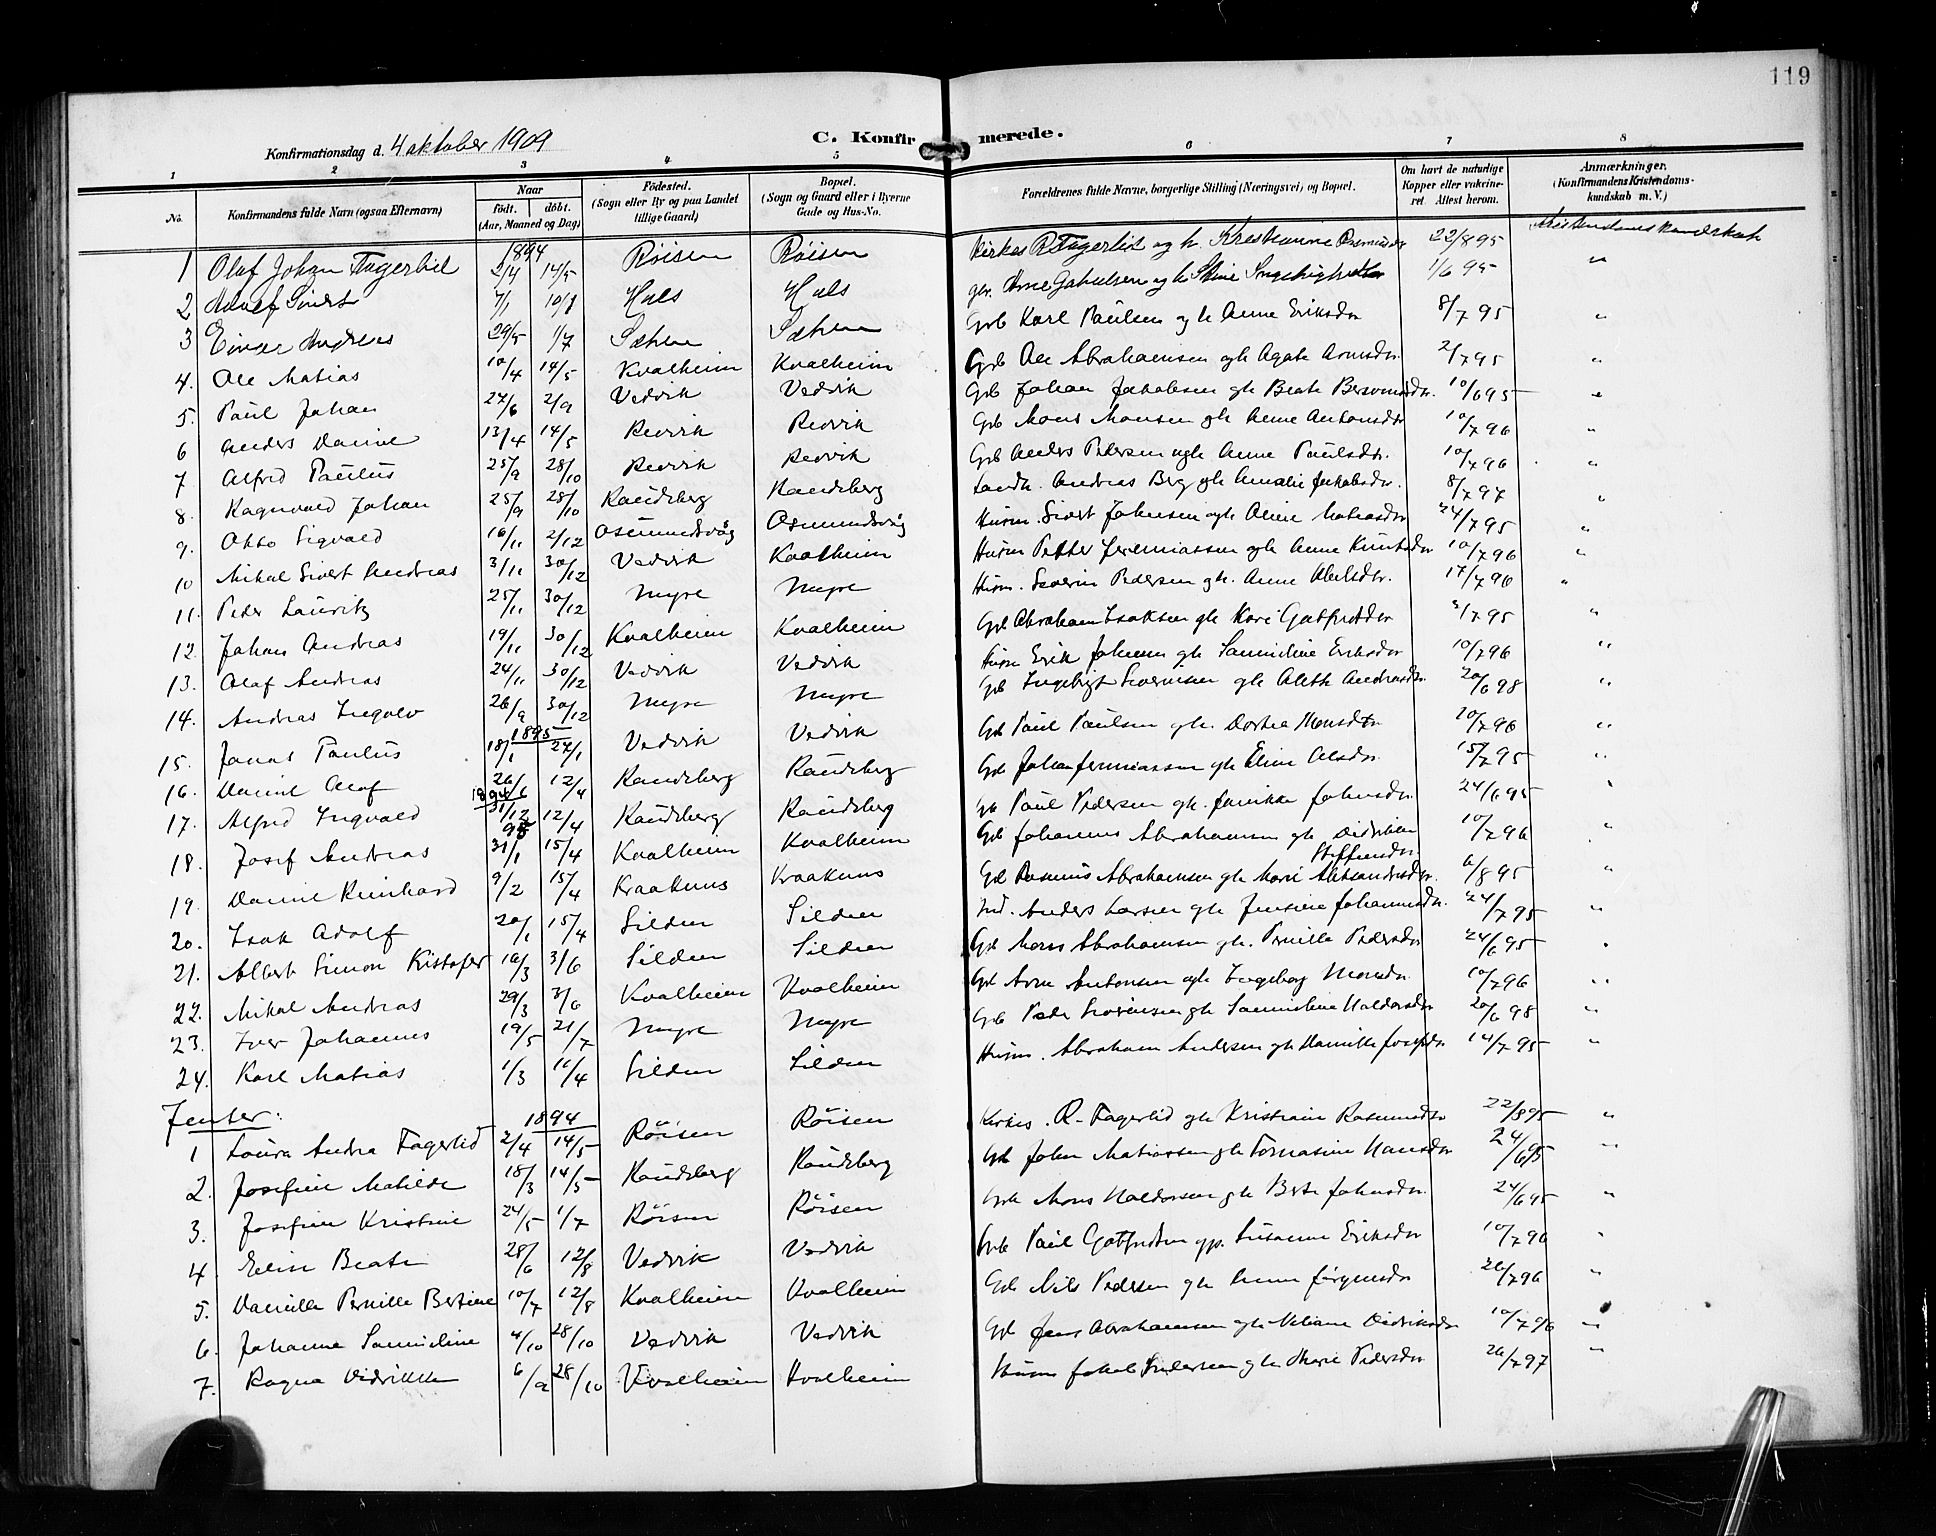 119
C. Konfirmerede.
Konfirmationsdag d. 4 oktober 1909
1 2 3 4 5 6 7 8
No. Konfirmandens fulde Navn (ogsaa Efternavn) Naar født. døbt. (Aar, Maaned og Dag) Fødested. (Sogn eller By og paa Landet tillige Gaard) Bopæl. (Sogn og Gaard eller i Byerne Gade og Hus-No. Forældrenes fulde Navne, borgerlige Stilling (Næringsvei) og Bopæl. Om havt de naturlige Kopper eller vakcineret. Attest herom. Anmærkninger. (Konfirmandens Kristendomskundskab m. V.)
1894 Kristendoms kundskab
1 Olaf Johan Fagerlid 2/4 14/5 Röisen Röisen Kirkes. R Fagerlid og h. 22/8 95
2 Sivert 7/1 10/1 Hals Hals 1/6 95 "
3 Einar Andreas 29/5 1/7 Grb Karl Paulsen og h Anne Eriksdr 8/7 95 "
4. Ole Matias 10/4 14/5 Kvalheim Kvalheim Grb Ole Abrahamsen og h Agate 2/7 95 "
5. Paul Johan 27/6 2/9 Vedvik Vedvik Grb Johan Jakobsen gh Beate 10/6 95 "
6 Anders Daniel 13/4 14/5 Revik Revik Grb Mons Monsen og h Anne Antonsdr 10/7 96 "
7 Alfred Paulus 25/9 28/10 Revik Revik Grb Anders Pedersen og h Anne Paulsdr. 10/7 96 "
8. Ragnvald Johan 25/9 28/10 Raudeberg Raudeberg Landh. Andreas Berg og h Amalie Jakobsdr. 8/7 97 "
9. Otto Sigvald 16/11 2/12 Osmundsvåg Osmundsvåg Husm. Sivert Johnsen og h Oline Matiasdr 24/7 95 "
10 Mikal Sivert Andreas 3/11 30/12 Vedvik Kvalheim Husm Petter Jeremiassen og h Anne Knutsdr 10/7 96 "
11. Peder Lauritz 25/11 30/12 Myre Myre Husm. Severin Pedersen gh. Anne 17/7 96 "
12. Johan Andreas 19/11 30/12 Kvalheim Kvalheim Grb Abraham Isaksen gh Kari Gotfreddr 2/7 95 "
13. Olaf Andreas 24/11 30/12 Vedvik Vedvik Husm Erik Johnsen gh Samueline Eriksdr 10/7 96 "
14. Andreas Ingolv 26/9 30/12 Myre Myre Grb Ingebrigt Severinsen gh Alette Andreasdr 20/6 98 "
1895
15. Jonas Paulus 18/1 27/1 Vedvik Vedvik Grb Paul Paulsen og h. Dortea Monsdtr 10/7 96 "
16. Daniel Olaf 26/6 12/4 Raudeberg Raudeberg Grb Johan Jeremiassen gh Eline Olsdr 15/7 95 "
17. Alfred Ingvald 1894 31/12 12/4 Raudeberg Raudeberg Grb Paul Pedersen gh. Johnsdr. 24/6 95 "
95
18. Josef Andreas 31/1 15/4 Kvalheim Kvalheim Grb Johannes Abrahamsen gh Steffensdr. 10/7 96 "
19. Daniel Reinhard 9/2 15/4 Kraakenes Kraakenes Grb Rasmus Abrahamsen gh Marie 6/8 95 "
20. Isak Adolf 20/1 15/4 Silden Silden Ind. Anders Larsen gh Jensine Johannesdr. 24/7 95 "
21. Albert Simon Kristofer 16/3 3/6 Silden Silden Grb Mons Abrahamsen gh. Pernille Pedersdr 24/6 95 "
22. Mikal Andreas 29/3 3/6 Kvalheim Kvalheim Grb Arne Antonsen og h Ingeborg Monsdr 10/7 96 "
23. Iver Johannes 19/5 21/7 Myre Myre Grb Peder Severinsen gh Samueline Haldorsdr 20/6 98 "
24. Karl Matias 1/3 16/4 Silden Silden Husm. Abraham Andersen gh Josefsdr 14/7 95 "
Jenter: 1894
1 Laura Andrea Fagerlid 2/4 14/5 Röisen Röisen Kirkes. R. Fagerlid gh Kristiane Rasmusdr 22/8 95 "
2. Josefine Matilde 18/3 14/5 Raudeberg Raudeberg Grb John Matiassen gh Tomasine Hansdr 24/6 95 "
3. Josefine Kristine 24/5 1/7 Röisen Röisen Grb Mons Haldorsen gh Berte Johnsdr. 24/6 95 "
4. Eline Beate 28/6 12/8 Vedvik Vedvik Grb Paul Gotfredsen gh. Susanne Eriksdr 10/7 96 "
5. Pernille Bertine 10/7 12/8 Kvalheim Kvalheim Grb Nils Pedersen gh Anne Jörgensdr 26/7 96 "
6. Johanne Samueline 4/10 28/10 Vedvik Vedvik Grb Jens Abrahamsen og h Didriksdr 10/7 96 "
7. Ragna Didrikke 6/9 28/10 Kvalheim Kvalheim Husm Jakob Andersen gh Marie Pedersdr 26/7 97 "